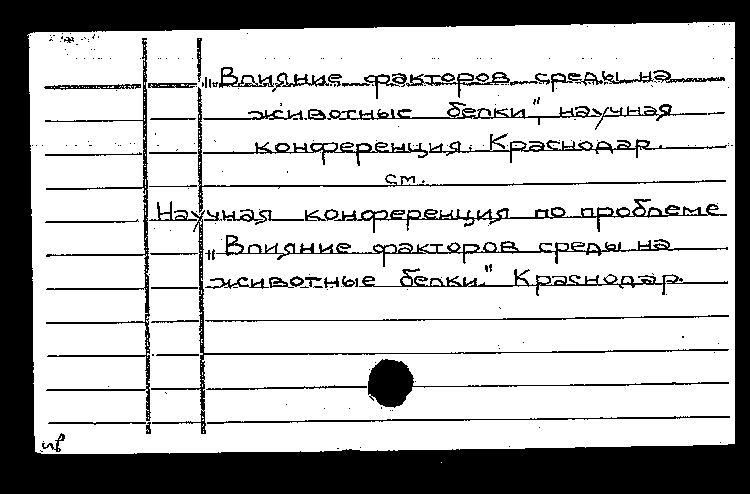 „Влияние факторов среды на
животные белки", научная
конференция. Краснодар.
см.
Научная конференция по проблеме
„Влияние факторов среды на
животные белки." Краснодар.